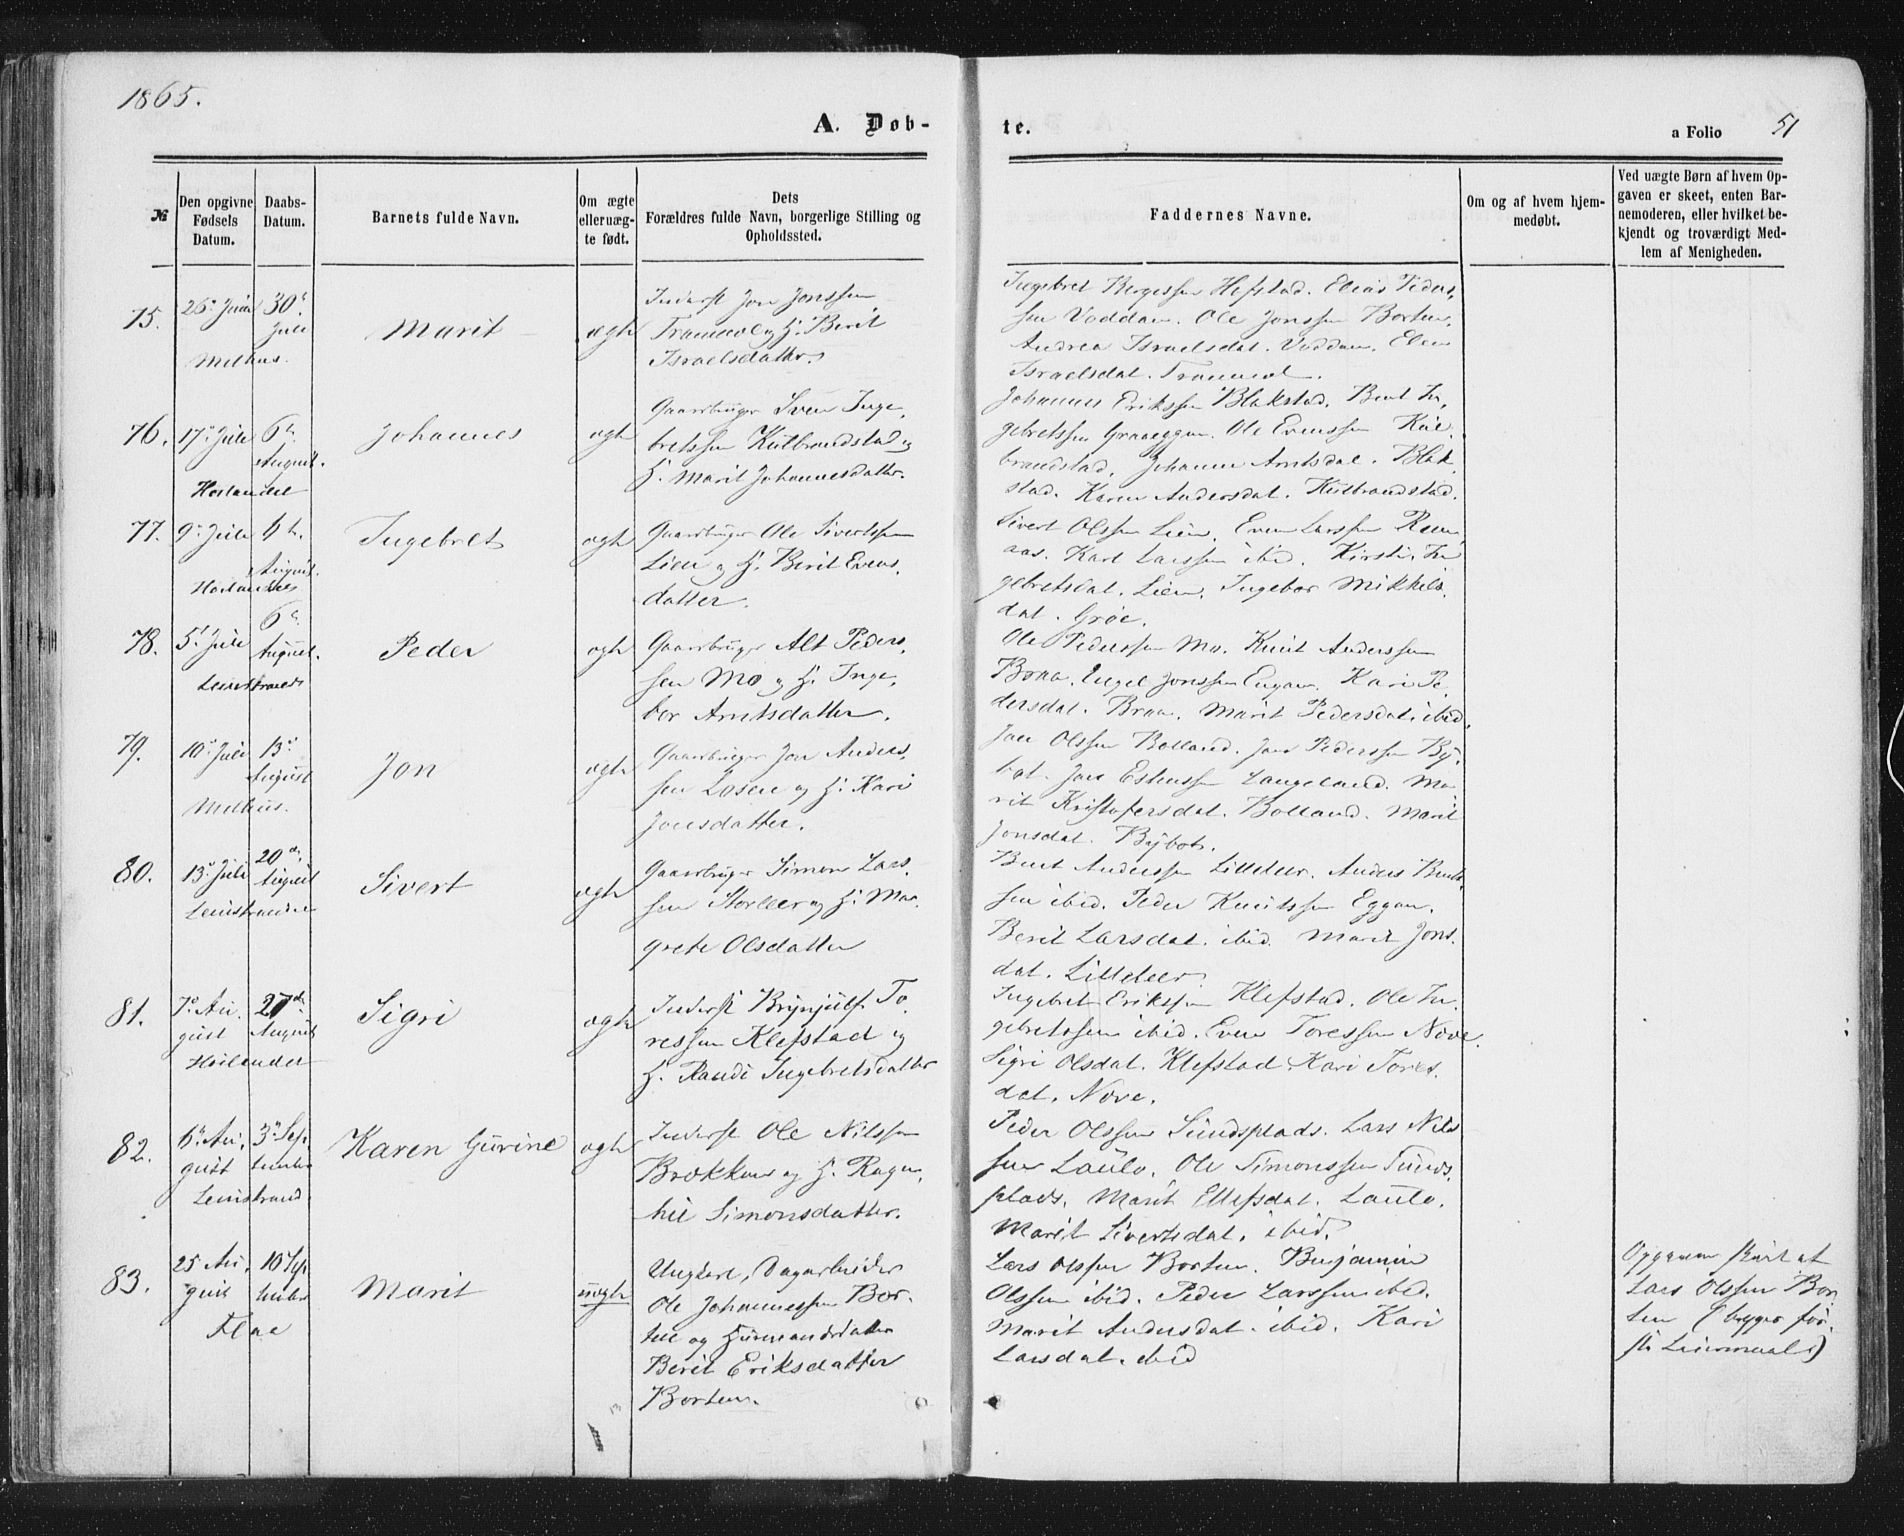 1865.
A. Døb-
te.
a Folio 51
№
Den opgivne Fødsels Datum.
Daabs-Datum.
Barnets fulde Navn.
Om ægte eller uægte født.
Dets Forældres fulde Navn, borgerlige Stilling og Opholdssted.
Faddernes Navne.
Om og af hvem hjemmedøbt.
Ved uægte Børn af hvem Opgaven er skeet, enten Barnemoderen, eller hvilket bekjendt og troværdigt Medlem af Menigheden.
75.
26. Juni
30. Juli
Melhus.
Marit
ægte
Inderst Jon Jonssen
Tranmæl og H. Berit
Israelsdatter.
Ingebret Hefstad. Elias Peders
sen Voddan. Ole Jonssen Borten.
Andrea Israelsdat. Voddan. Elen
Israelsdat. Tranmæl.
76.
17. Juli
6te August.
Høilandet
Johannes
ægte
Gaardbruger Sven Inge
bretssen Kulbrandstad og
H. Marit Johannesdatter.
Johannes Erikssen Blakstad. Bent In
gebretssen Graaeggen. Ole Evenssen Kul
brandstad. Johanna Arntsdat. Blak
stad. Karen Andersdat. Kulbrandstad.
77.
9. Juli
6te August.
Ingebret
ægte
Gaardbruger Ole Sivertssen
Lien og H. Berit Evens
datter.
Sivert Olssen Lien. Even Larssen
Karl Larssen ibid. Kirsti In
gebretsdat. Lien. Ingebor Mikkels
dat. Grøe.
78.
5te Juli
6te August.
Leinstrand
Peder
ægte
Gaardbruger Alt Peders
sen Mo og H. Inge
bor Arntsdatter.
Ole Pederssen Mo. Knut Anderssen
Braa. Engel Jonssen Engan. Kari Pe
dersdat. Braa. Marit Pedersdat. ibid.
79.
10. Juli
13. August
Melhus.
Jon
ægte
Gaardbruger Jon Anders
sen Løsen og H. Kari
Jonsdatter.
Jon Olssen Bolland. Jon Pederssen By
bot. Jon Estenssen Langeland. Ma
rit Kristofersdat. Bolland. Marit
Jonsdat. Bybot.
80.
13. Juli
20de August
Leinstranden
Sivert
ægte
Gaardbruger Simon Lars
sen Storleer og H. Mar
grete Olsdatter
Bent Anderssen Litleleer. Anders Bents
sen ibid. Peder Knutssen Eggan.
Berit Larsdat. ibid. Marit Jons
dat. Litleleer.
81.
7. August
27de August
Høilandet
Sigri
ægte
Inderst Brynjulf To
ressen Klefstad og
H. Randi Ingebretsdatter
Ingebret Erikssen Klefstad. Ole In
gebretssen ibid. Even Toressen Nove.
Sigri Olsdat. Klefstad. Kari Tores
dat. Nove.
82.
6. August
3. September
Leinstrand.
Karen Gurine
ægte
Inderst Ole Nilssen
Brækken og H. Ragn
hil Simonsdatter.
Peder Olssen Sundsplads. Lars Nils
sen Laulo. Ole Simonssen Sunds
plads. Marit Ellefsdat. Laulo.
Marit Sivertsdat. ibid.
83.
25 August
10 September
Flaa
Marit
uægte
Ungkarl, Dagarbeider
Ole Johannessen Bor
ten og Husmandsdatter
Berit Eriksdatter
Borten.
Lars Olssen Borten. Benjamin
Olssen ibid. Peder Larssen ibid.
Marit Andersdat. ibid. Kari
Larsdat. ibid
Opgaven skeet af
Lars Olssen Bor
ten (begges før
ste Leiermaal)